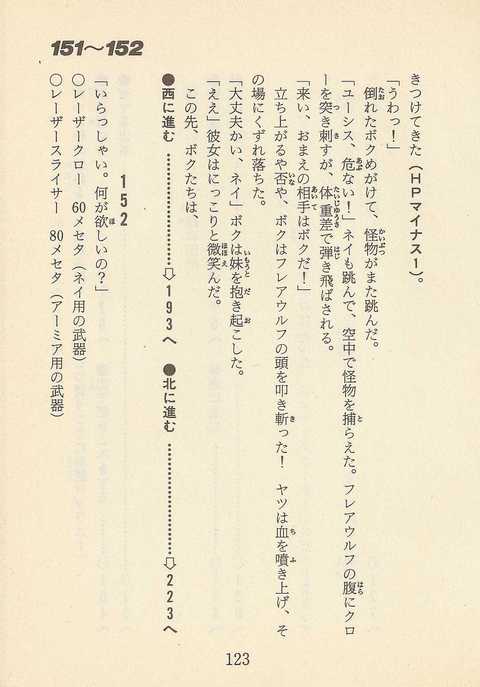 151〜152
きつけてきた（ＨＰマイナス１）。
「うわっ！」
倒れたボクめがけて、怪物がまた跳んだ。
「ユーシス、危ない！」ネイも跳んで、空中で怪物を捕らえた。フレアウルフの腹にクロ
ーを突き刺すが、体重差で弾き飛ばされる。
「来い、おまえの相手はボクだ！」
立ち上がるや否や、ボクはフレアウルフの頭を叩き斬った！　ヤツは血を噴き上げ、そ
の場にくずれ落ちた。
「大丈夫かい、ネイ」ボクは妹を抱き起こした。
「ええ」彼女はにっこりと微笑んだ。
この先、ボクたちは、
●西に進む………………⇨１９３へ　●北に進む………………⇨２２３へ
１５２
「いらっしゃい。何が欲しいの？」
○レーザークロー　60メセタ（ネイ用の武器）
○レーザースライサー　80メセタ（アーミア用の武器）
123